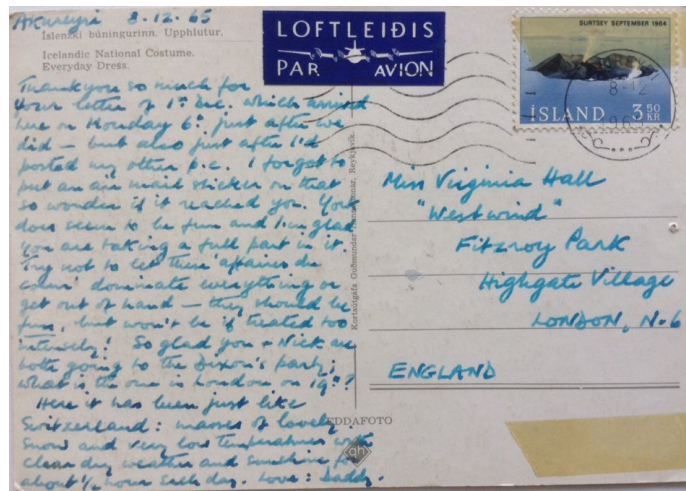 Akureyri 8.12.65
Íslenzki búningurinn. Upphlutur.
Icelandic National Costume.
Everyday Dress.
Thank you so much for
your letter of 1st Dec. which arrived
here on Monday 6th, just after we
did – but also just after I'd
posted my other p.c. I forgot to
put an air mail sticker on that
so wonder if it reached you. York
does seem to be fun and I'm glad
you are taking a full part in it.
Try not to let these 'affaires du
coeur' dominate everything or
get out of hand – they should be
fun, but won't be if treated too
intensely! So glad you + Nick are
both going to the Dixon's party;
what is the one in London on 19th?
Here it has been just like
Switzerland: masses of lovely
snow and very low temperatures with
clear dry weather and sunshine for
about ½ hour each day. Love: Daddy.
LOFTLEIÐIS
PAR AVION
SURTSEY SEPTEMBER 1964
ÍSLAND 3.50 KR
8-12
Miss Virginia Hall
"Westwind"
Fitzroy Park
Highgate Village
LONDON, N.6
ENGLAND
EDDAFOTO